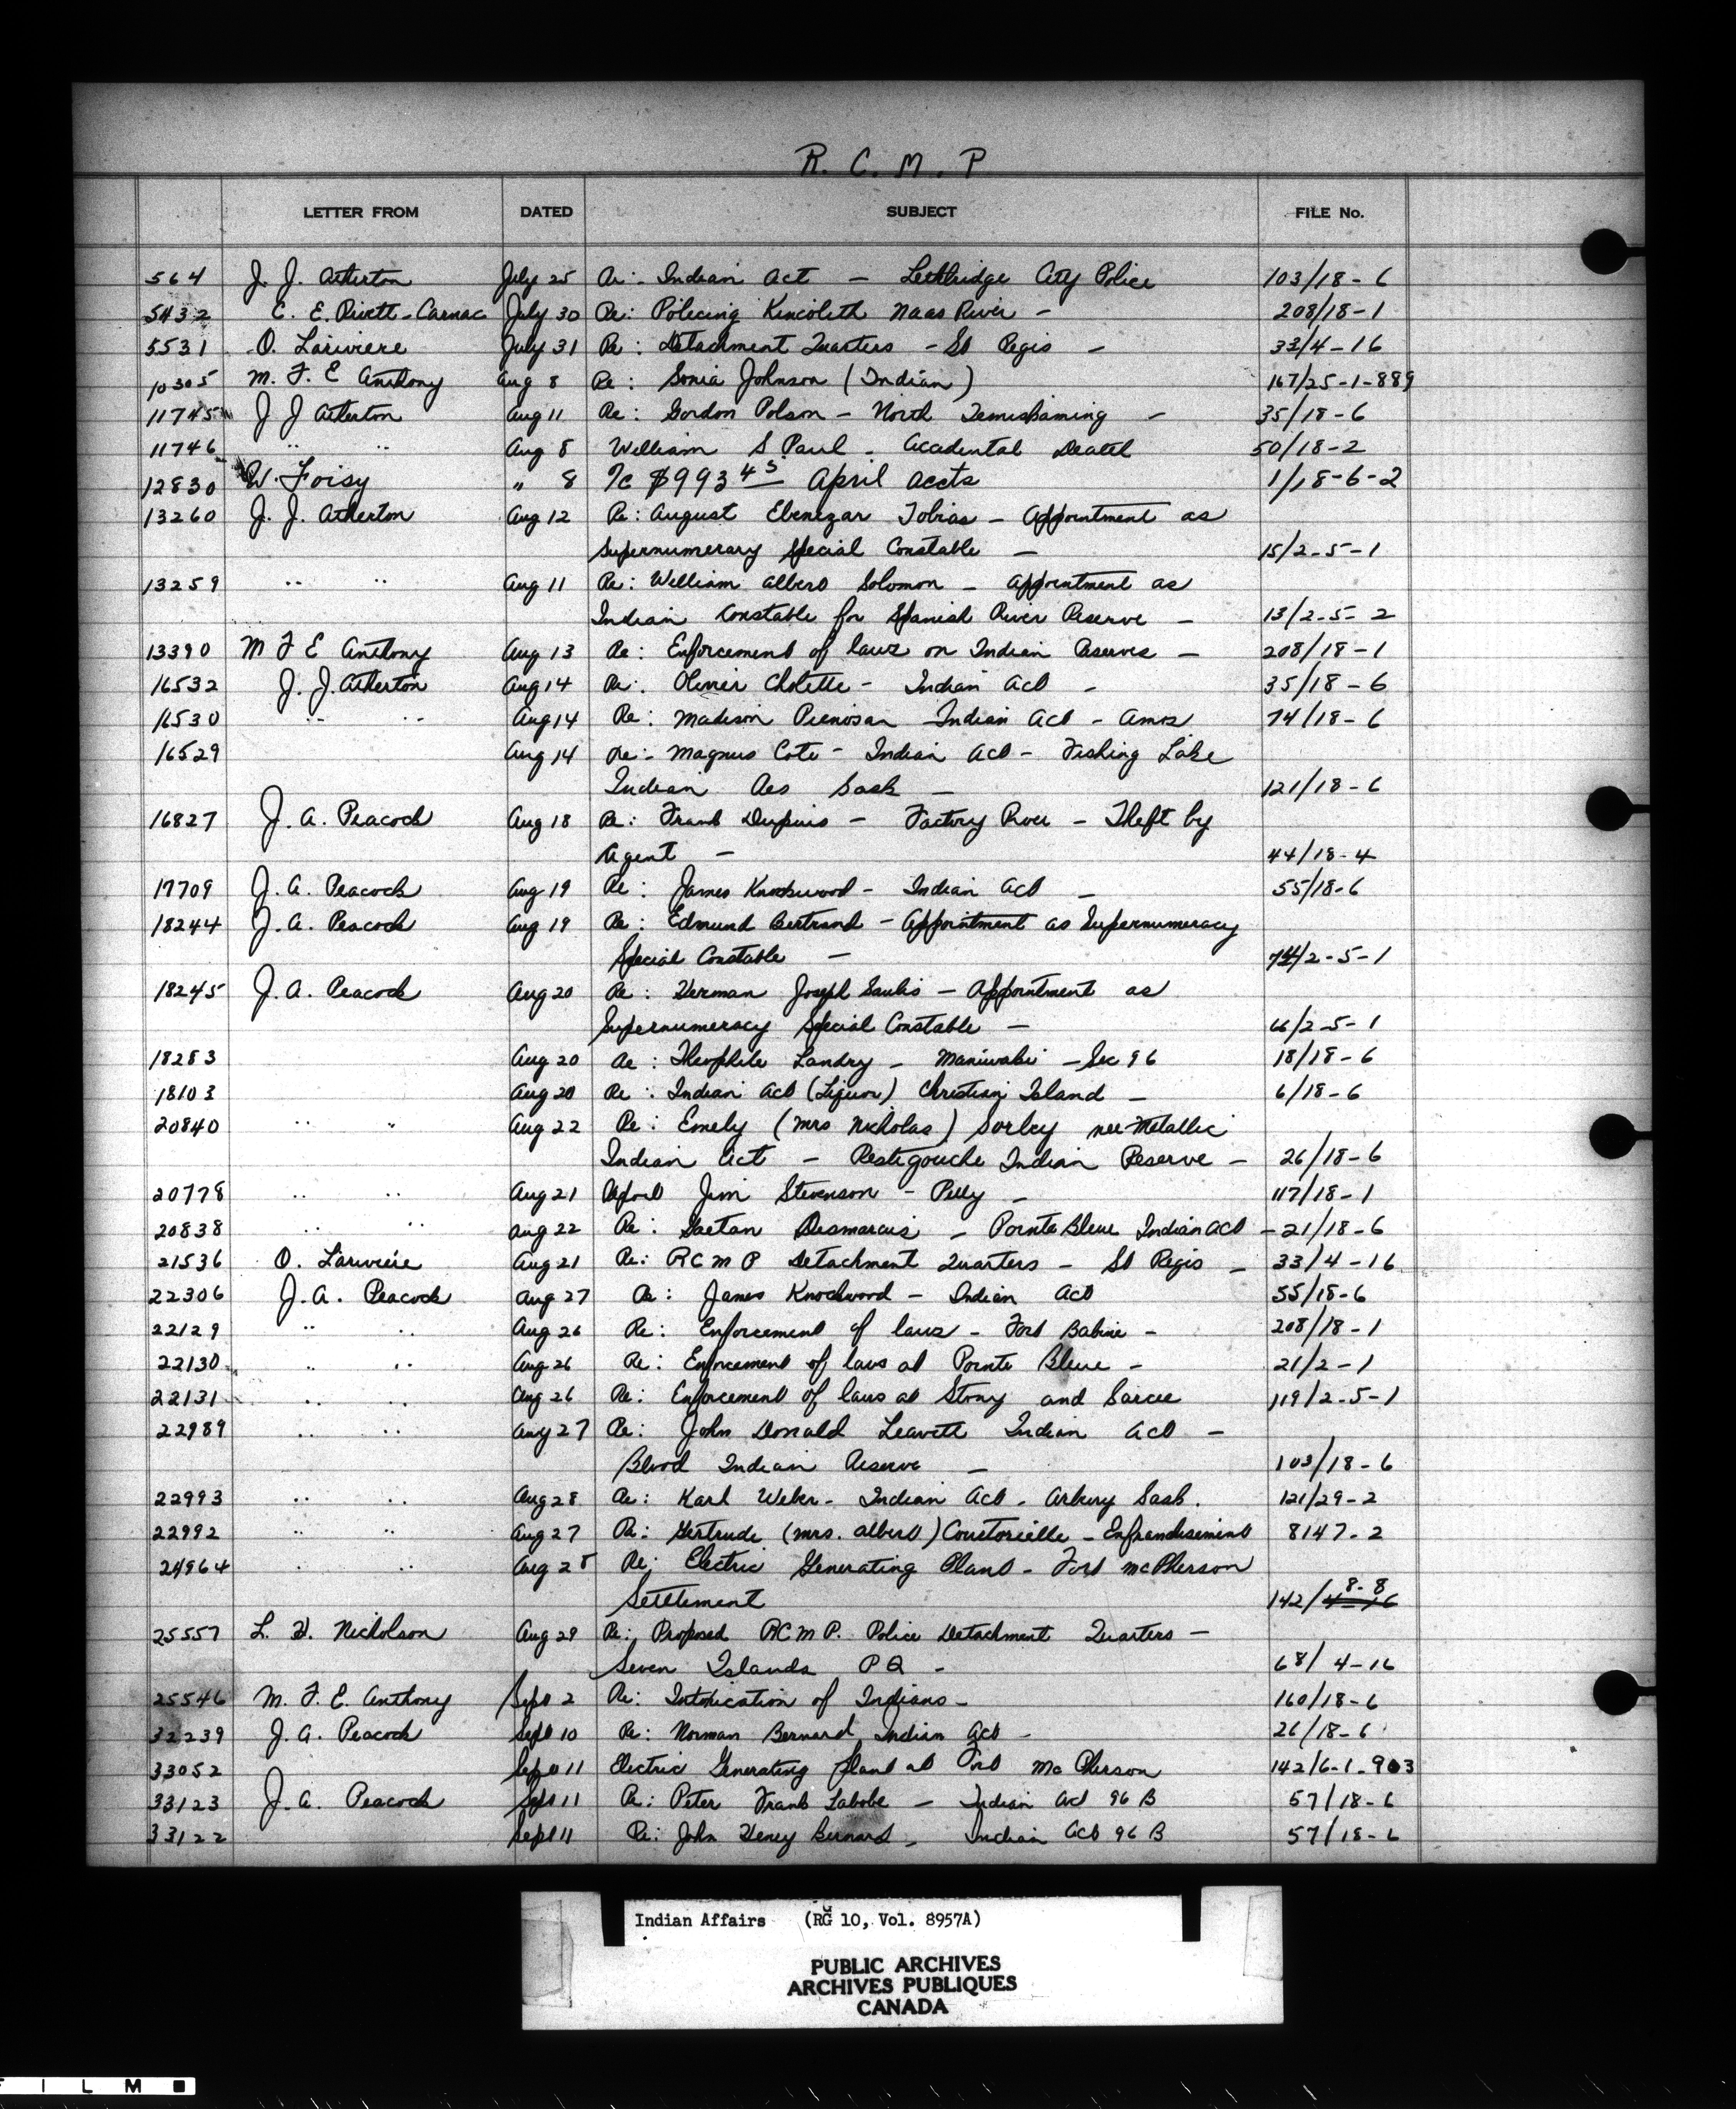 R. C. M. P
LETTER FROM DATED SUBJECT FILE No.
564 J. J. Atherton July 25 Re: Indian Act — Lethbridge City Police 103/18-6
5432 C. E. Rivett-Carnac July 30 Re: Policing Kincolith Naas River — 208/18-1
5531 O. Lariviere July 31 Re: Detachment Quarters - St Regis — 33/4-16
10305 M. F. E Anthony Aug 8 Re: Sonia Johnson (Indian) 167/25-1-889
11745 J J Atherton Aug 11 Re: Gordon Polson - North Temiskaming — 35/18-6
11746 " " Aug 8 William S Paul - Accidental Death 50/18-2
12830 W. Foisy " 8 Tc $993 45 April accts 1/18-6-2
13260 J. J. Atherton Aug 12 Re: August Ebenezar Tobias - Appointment as
Supernumerary Special Constable — 15/2-5-1
13259 " " Aug 11 Re: William Albert Solomon - Appointment as
Indian Constable for Spanish River Reserve — 13/2-5-2
13390 M F E Anthony Aug 13 Re: Enforcement of laws on Indian Reserves — 208/18-1
16532 J. J. Atherton Aug 14 Re: Olivier Cholette - Indian Act - 35/18-6
16530 " " Aug 14 Re: Madison Indian Act - Amos 74/18-6
16529 Aug 14 Re: Magnus Cote - Indian Act - Fishing Lake
Indian Res Sask — 121/18-6
16827 J. A. Peacock Aug 18 Re: Frank Dupuis - Factory River - Theft by
Agent — 44/18-4
17709 J. A. Peacock Aug 19 Re: James Knockwood - Indian Act — 55/18-6
18244 J. A. Peacock Aug 19 Re: Edmund Bertrand - Appointment as Supernumeracy
Special Constable — /2-5-1
18245 J. A. Peacock Aug 20 Re: Herman Joseph Saulis - Appointment as
Supernumeracy Special Constable — 66/2-5-1
18283 Aug 20 Re: Theophile Landry - Maniwaki - Sec 96 18/18-6
18103 Aug 20 Re: Indian Act (Liquor) Christian Island — 6/18-6
20840 " " Aug 22 Re: Emely (Mrs Nicholas) Sorley nee Metallic
Indian Act - Restigouche Indian Reserve — 26/18-6
20778 " " Aug 21 Jim Stevenson - Pelly - 117/18-1
20838 " " Aug 22 Re: Gaetan Desmarais - Pointe Bleue Indian Act - 21/18-6
21536 O. Lariviere Aug 21 Re: R C M P Detachment Quarters - St Regis - 33/4-16
22306 J. A. Peacock Aug 27 Re: James Knockwood - Indian Act 55/18-6
22129 " " Aug 26 Re: Enforcement of laws - Fort Babine - 208/18-1
22130 " " Aug 26 Re: Enforcement of laws at Pointe Bleue - 21/2-1
22131 " " Aug 26 Re: Enforcement of laws at Stony and Sarcee 119/2-5-1
22989 " " Aug 27 Re: John Donald Leavitt Indian Act -
Blood Indian Reserve — 103/18-6
22993 " " Aug 28 Re: Karl Weber - Indian Act - Sask. 121/29-2
22992 " " Aug 27 Re: Gertrude (Mrs. Albert) Courtorielle - Enfranchisement 8147-2
24964 " " Aug 28 Re: Electric Generating Plant - Fort McPherson
Settlement 142/8-8
25557 L. H. Nicholson Aug 29 Re: Proposed R C M P. Police Detachment Quarters —
Seven Islands P Q - 68/4-16
25546 M. F. E. Anthony Sept 2 Re: Intoxication of Indians - 160/18-6
32239 J. A. Peacock Sept 10 Re: Norman Bernard Indian Act - 26/18-6
33052 Sept 11 Electric Generating plant at Fort Mc Pherson 142/6-1-903
33123 J. A. Peacock Sept 11 Re: Peter Frank Labobe - Indian Act 96 B 57/18-6
33122 Sept 11 Re: John Henry Bernard - Indian Act 96 B 57/18-6
Indian Affairs (RG 10, Vol. 8957A)
PUBLIC ARCHIVES
ARCHIVES PUBLIQUES
CANADA
F I L M